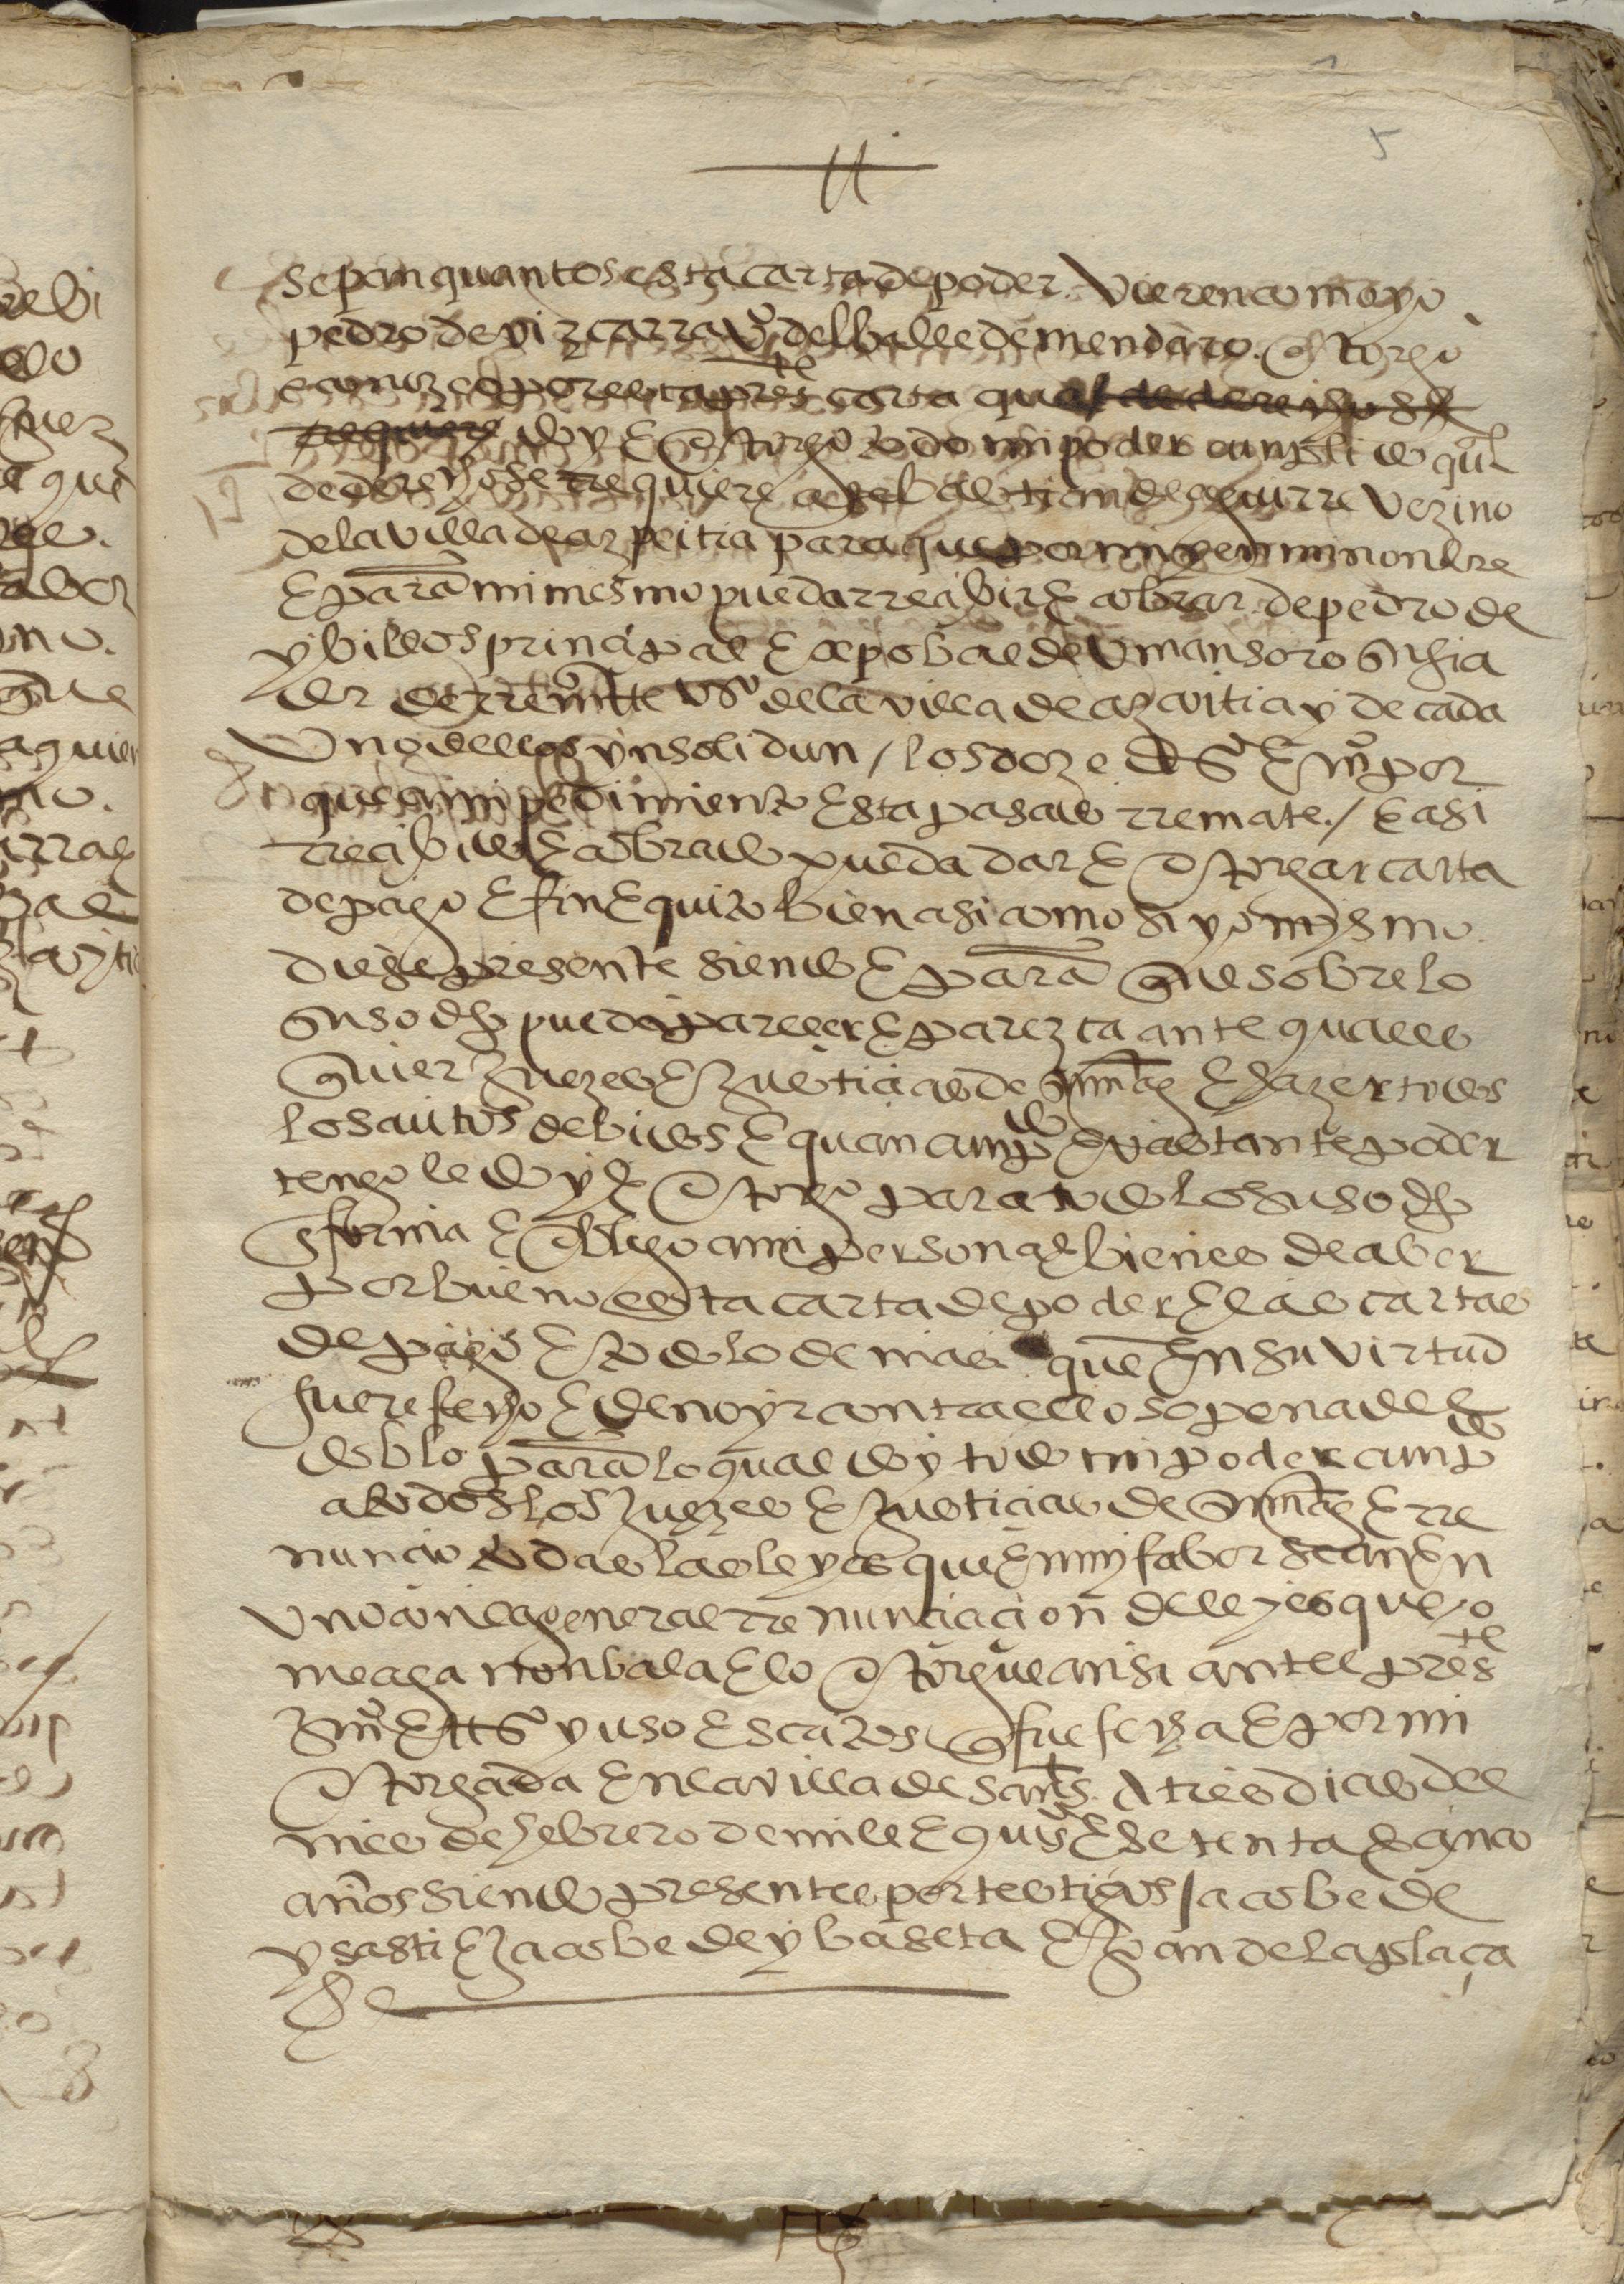 5
Sepan quantos esta carta de poder vieren como yo
pedro de vizcarra vº del balle de mendaro otorgo
e conozco por esta preste carta qual de derecho se
rrequiere doy e otorgo todo mi poder cunplido qual
de derecho se rrequiere a sebastian de aguirre vezino
de la villa de azpeitia para que por mi y en mi nonbre
e para mi mesmo pueda rrecibir e cobrar de pedro de
ybillos principal e xpobal de umansoro su fia
dor de rremate vºs de la villa de azcoitia y de cada
uno dellos ynsolidun / los doze dsº e mº por
que a mi pedimiento esta pasado rremate / e asi
rrecibido e cobrado pueda dar e otorgar carta
de pago e fin e quito bien asi como si yo mismo
diese presente siendo e para que sobre lo
suso dho pueda parecer e parezca ante quales
quier juezes e justicias de su mag e hazer todos
los autos debidos e quan cunpdo e bastante poder
tengo le doy e otorgo para todo lo suso dho
en forma e obligo a mi persona e bienes de aber
por bueno esta carta de poder e las cartas
de pago e todo lo demas que en su virtud
fuere fecho e de no yr contra ello so pena del
doblo para lo qual doy todo mi poder cunpdo
a todos los juezes e justicias de su mag e rre
nuncio todas las leyes que en my fabor sean en
uno con la general rrenunciacion de leyes que yo
me aga non bala e lo otorgue ansi antel preste
escriº e tsº yuso escritos que fue fecha e por mi
otorgada en la villa de                a tres dias del
mes de hebrero de mill e quisº e setenta e cinco
años siendo presentes por testigos jacobe de
ysasti e jacobe de ybaseta e Juan de la plaça